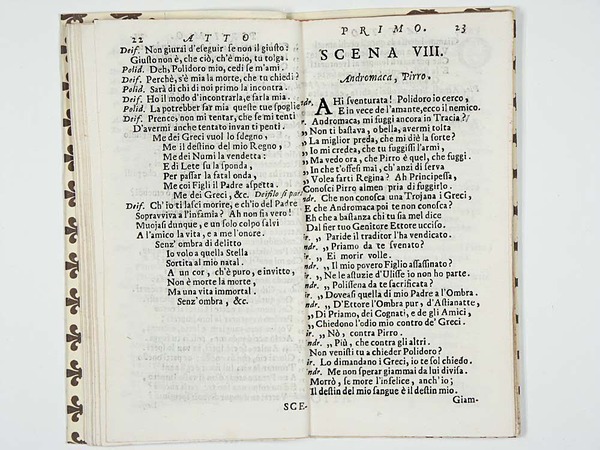 22 ATTO
Deif. Non giurai d'eseguir se non il giusto?
Giusto non è, che ciò, ch'è mio, tu tolga.
Polid. Deh, Polidoro mio, cedi se m'ami.
Deif. Perchè, s'è mia la morte, che tu chiedi?
Polid. Sarà di chi di noi primo la incontra.
Deif. Ho il modo d'incontrarla, e farla mia.
Polid. La potrebber far mia queste tue spoglie
Deif. Prence, non mi tentar, che se mi tenti
D'avermi anche tentato invan ti penti.
Me dei Greci vuol lo sdegno,
Me il destino del mio Regno,
Me dei Numi la vendetta:
E di Lete su la sponda,
Per passar la fatal onda,
Me coi Figli il Padre aspetta.
Me dei Greci, &c. Deifilo si par
Deif. Ch'io ti lasci morire, e ch'io del Padre
Sopravviva a l'infamia? Ah non sia vero!
Muojasi dunque, e un solo colpo salvi
A l'amico la vita, e a me l'onore.
Senz' ombra di delitto
Io volo a quella Stella
Sortita al mio natal.
A un cor, ch'è puro, e invitto,
Non è morte la morte,
Ma una vita immortal.
Senz'ombra, &c.
SCE-
PRIMO. 23
SCENA VIII.
Andromaca, Pirro.
ndr. AHi sventurata! Polidoro io cerco,
E in vece de l'amante, ecco il nemico.
r. Andromaca, mi fuggi ancora in Tracia?
„ Non ti bastava, o bella, avermi tolta
„ La miglior preda, che mi diè la sorte?
„ Io mi credea, che tu fuggissi l'armi,
„ Ma vedo ora, che Pirro è quel, che fuggi.
„ In che t'offesi mai, ch'anzi di serva
„ Volea farti Regina? Ah Principessa,
Conosci Pirro almen pria di fuggirlo.
ndr. Che non conosca una Trojana i Greci,
E che Andromaca poi te non conosca?
Eh che a bastanza chi tu sia mel dice
Dal fier tuo Genitore Ettore ucciso.
ir. „ Paride il traditor l'ha vendicato.
ndr. „ Priamo da te svenato?
ir. „ Ei morir volle.
ndr. „ Il mio povero Figlio assassinato?
ir. „ Ne le astuzie d'Ulisse io non ho parte.
ndr. „ Polissena da te sacrificata?
ir. „ Doveasi quella di mio Padre a l'Ombra.
ndr. „ D'Ettore l'Ombra pur, d'Astianatte,
„ Di Priamo, dei Cognati, e de gli Amici,
„ Chiedono l'odio mio contro de' Greci.
ir. „ Nò, contro Pirro.
ndr. „ Più, che contra gli altri.
Non venisti tu a chieder Polidoro?
ir. Lo dimandano i Greci, io te sol chiedo.
ndr. Me non sperar giammai da lui divisa.
Morrò, se more l'infelice, anch'io;
Il destin del mio sangue è il destin mio.
Giam-